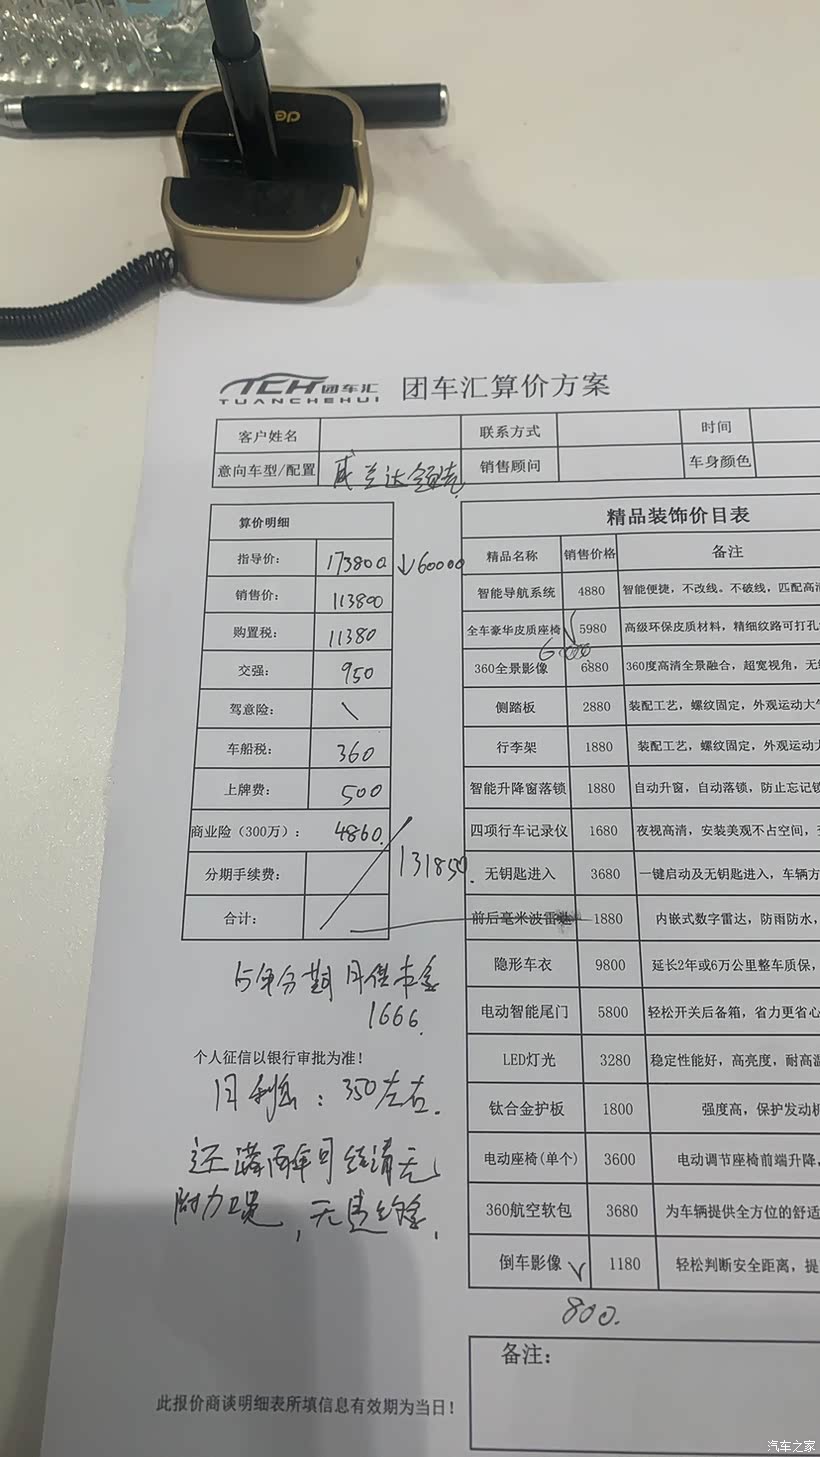 de
TCH 团车汇
TUANCHEHUI
团车汇算价方案
客户姓名 联系方式 时间
意向车型/配置 威兰达领先 销售顾问 车身颜色
算价明细
指导价: 173800 ↓60000
销售价: 113800
购置税: 11380
交强: 950
驾意险: \
车船税: 360
上牌费: 500
商业险（300万）: 4860.
分期手续费:
合计:
131850.
5年分期 月供本金
1666.
个人征信以银行审批为准!
月利息: 350左右.
还满两年可结清无
, 无违约金.
此报价商谈明细表所填信息有效期为当日!
精品装饰价目表
精品名称 销售价格 备注
智能导航系统 4880 智能便捷，不改线。不破线，匹配高清
全车豪华皮质座椅 √ 5980 高级环保皮质材料，精细纹路可打孔
360全景影像 6880 360度高清全景融合，超宽视角，无
侧踏板 2880 装配工艺，螺纹固定，外观运动大
行李架 1880 装配工艺，螺纹固定，外观运动
智能升降窗落锁 1880 自动升窗，自动落锁，防止忘记锁
四项行车记录仪 1680 夜视高清，安装美观不占空间，
无钥匙进入 3680 一键启动及无钥匙进入，车辆方
前后毫米波雷达 1880 内嵌式数字雷达，防雨防水，
隐形车衣 9800 延长2年或6万公里整车质保，
电动智能尾门 5800 轻松开关后备箱，省力更省心
LED灯光 3280 稳定性能好，高亮度，耐高温
钛合金护板 1800 强度高，保护发动机
电动座椅(单个) 3600 电动调节座椅前端升降，
360航空软包 3680 为车辆提供全方位的舒适
倒车影像 √ 1180 轻松判断安全距离，提
800.
备注:
汽车之家